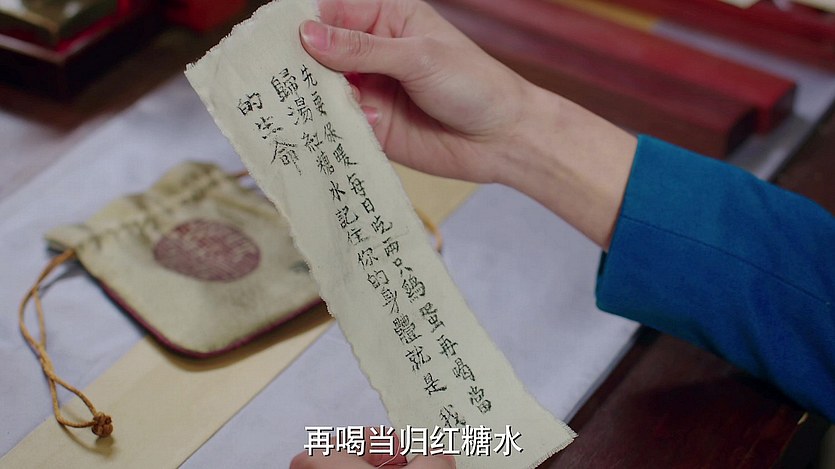 先要保暖每日吃兩只鷄蛋再喝當
歸湯紅糖水記住你的身體就是我
的生命
再喝当归红糖水